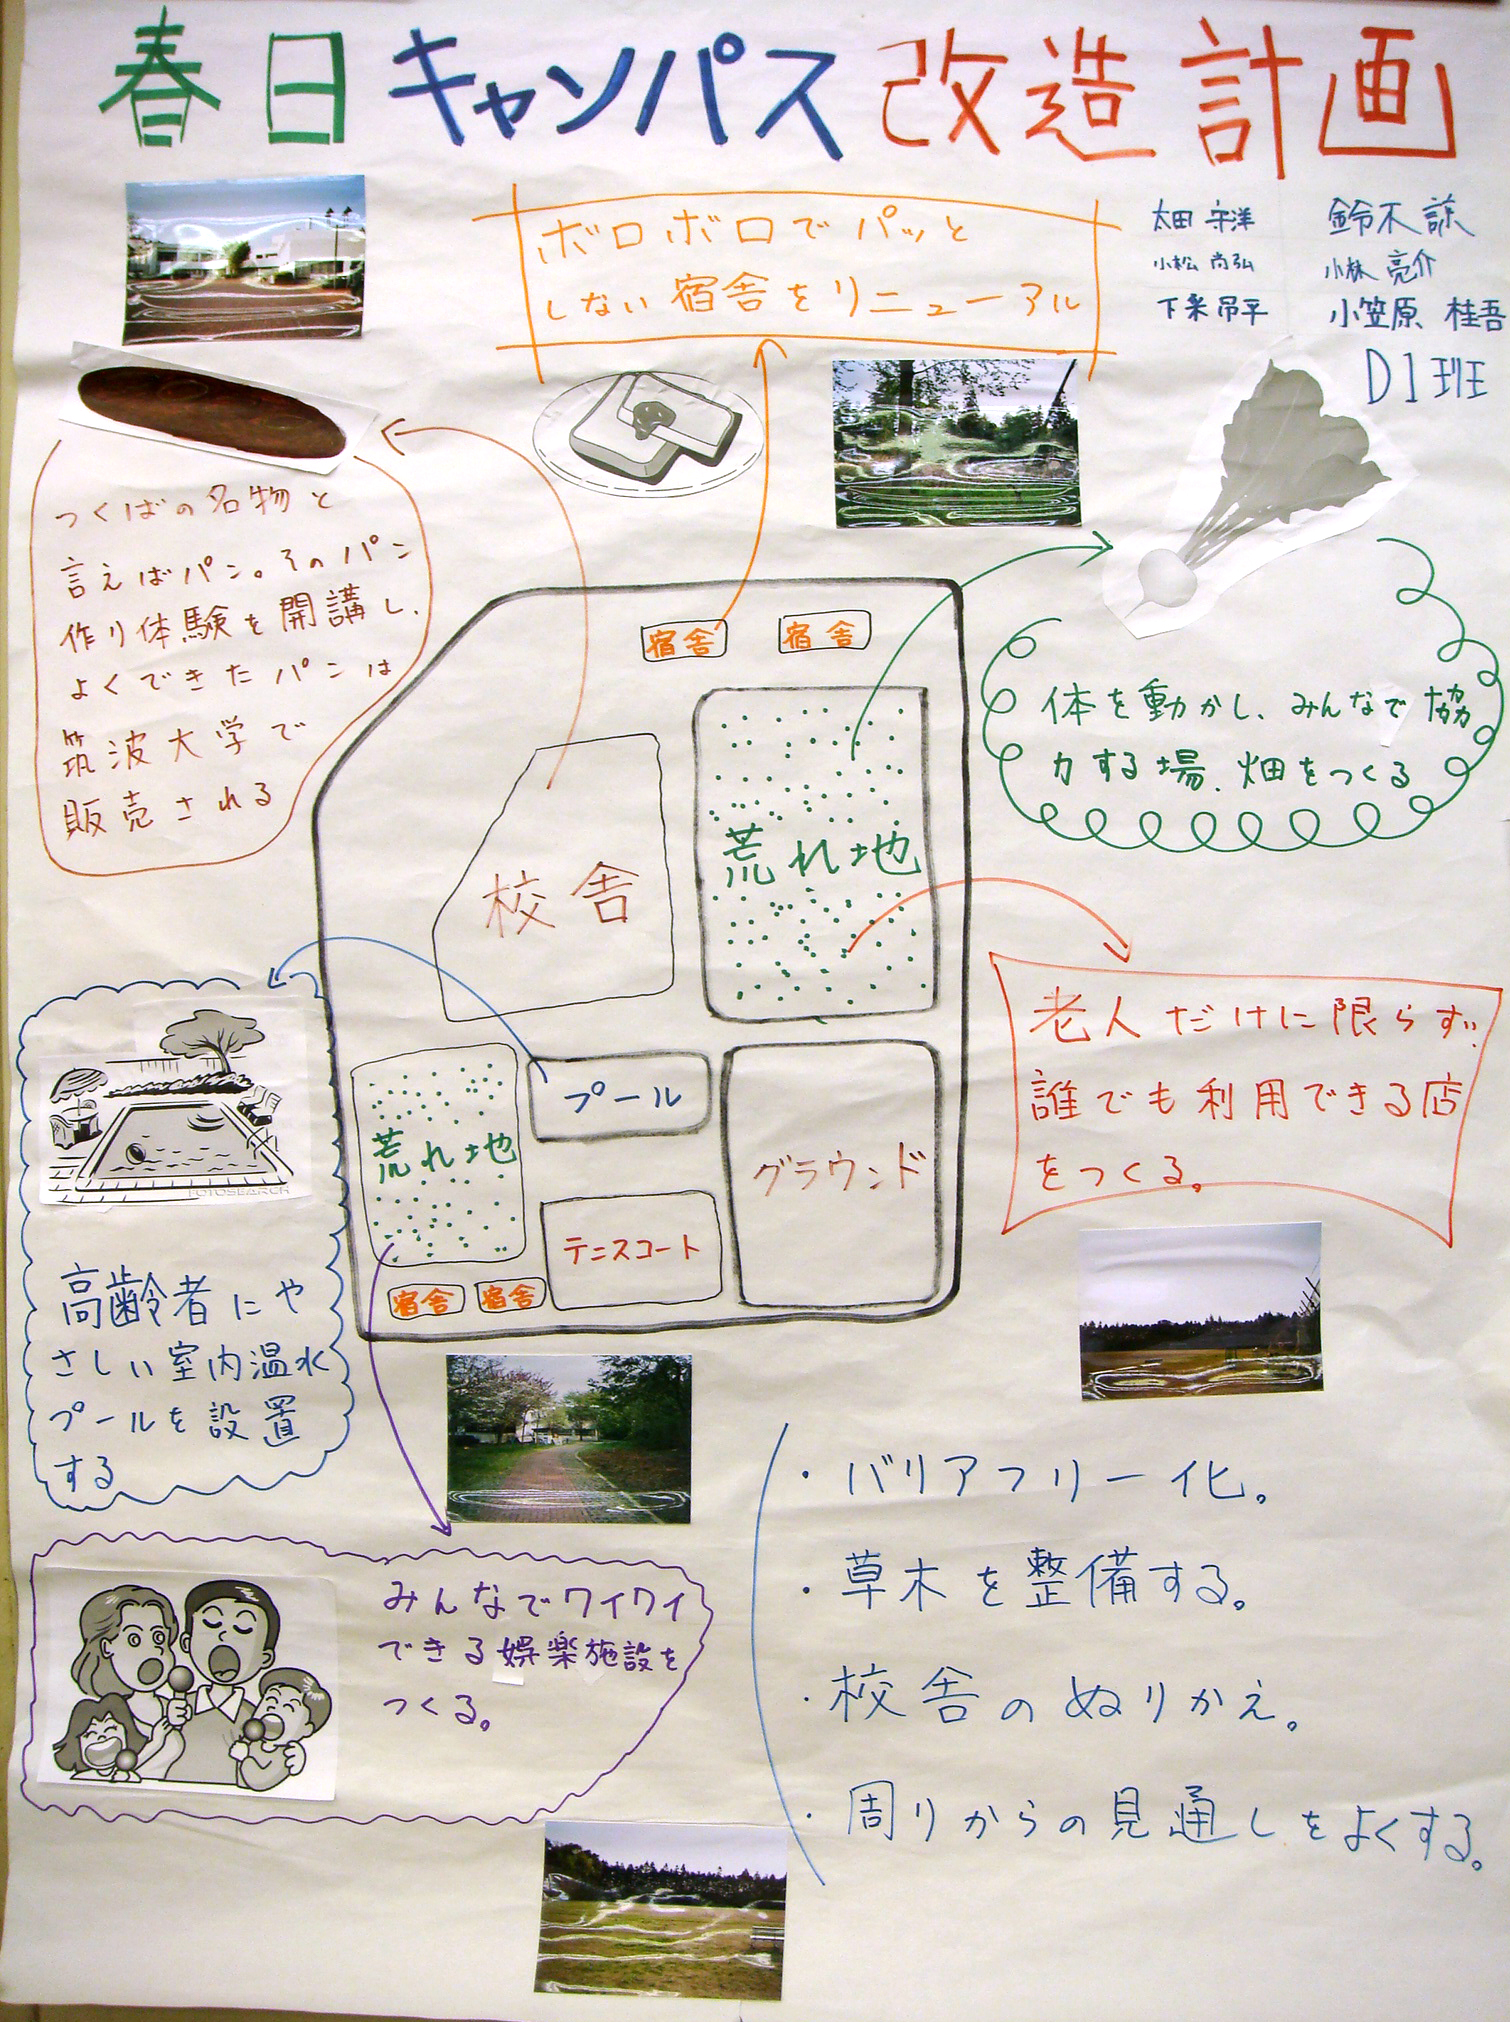 春日キャンパス改造計画
ボロボロでパッと
しない宿舎をリニューアル
太田 守洋
鈴木 諒
小松 尚弘
小林 亮介
下条
小笠原 桂吾
D1班
つくばの名物と
言えばパン。そのパン
作り体験を開講し、
よくできたパンは
筑波大学で
販売される
宿舎
宿舎
体を動かし、みんなで協
力する場、畑をつくる
荒れ地
校舎
老人だけに限らず、
誰でも利用できる店
をつくる。
プール
荒れ地
グラウンド
テニスコート
宿舎
宿舎
FOTOSEARCH
高齢者にや
さしい室内温水
プールを設置
する
みんなでワイワイ
できる娯楽施設を
つくる。
・バリアフリー化。
・草木を整備する。
・校舎のぬりかえ。
・周りからの見通しをよくする。